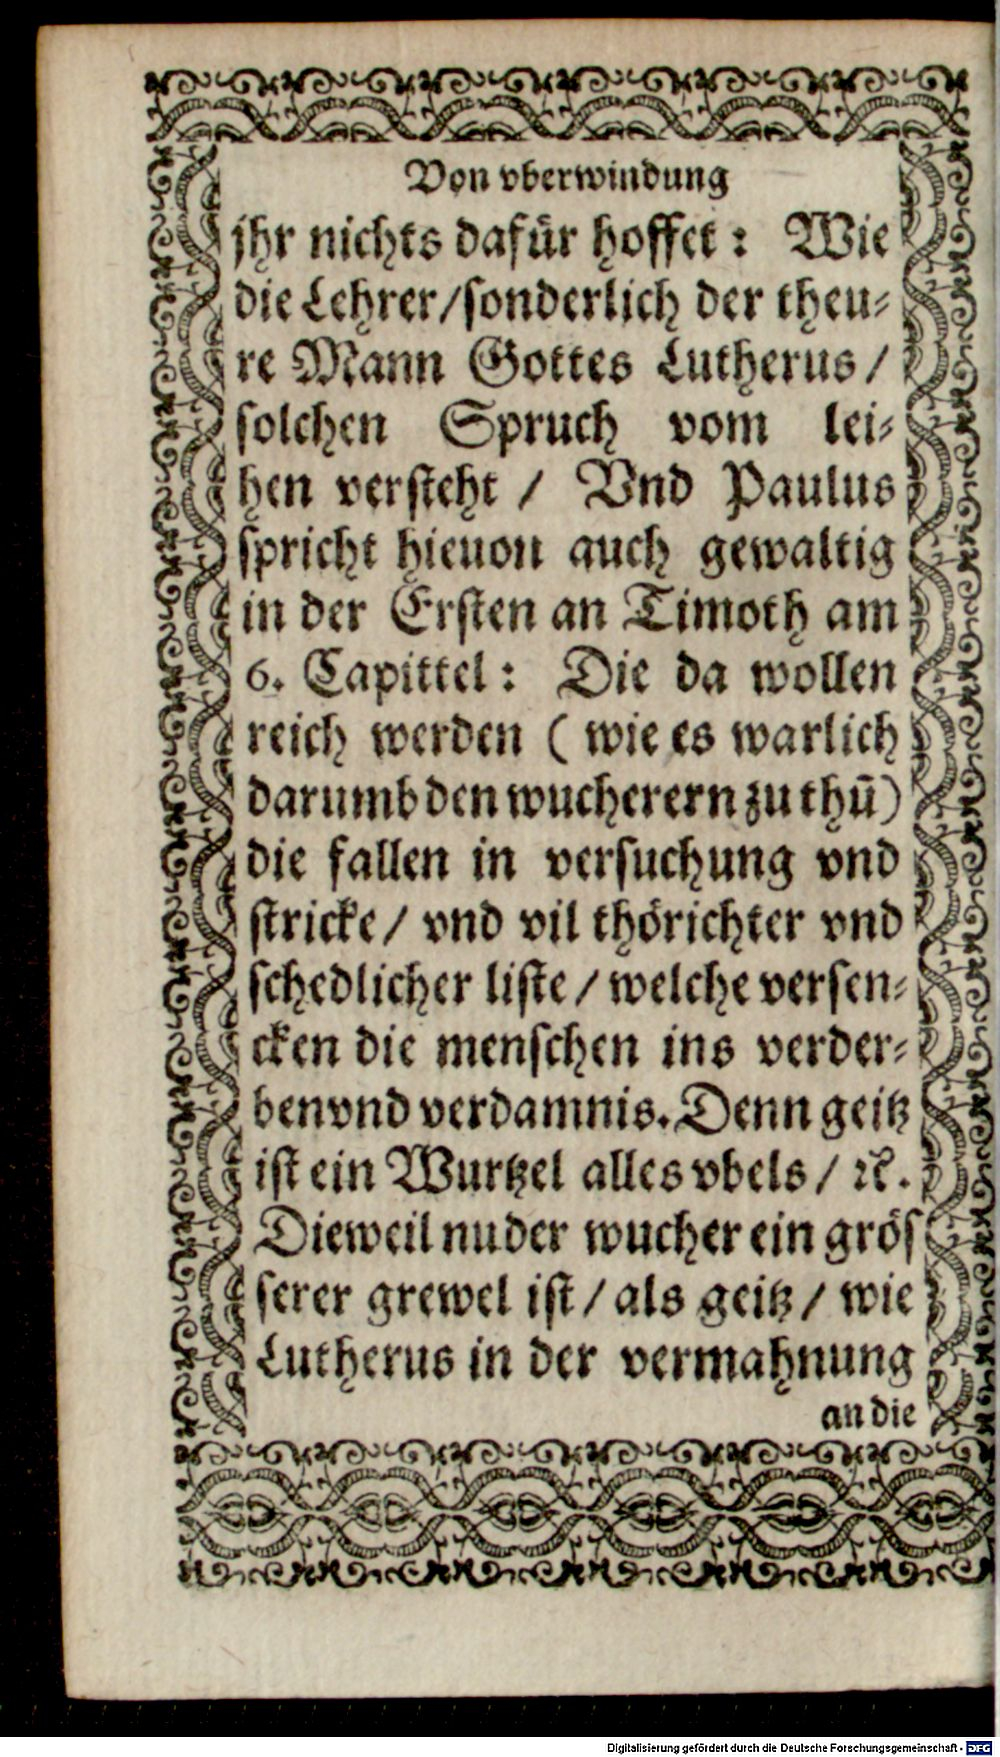 Von vberwindung
jhr nichts dafür hoffet: Wie
die Lehrer/sonderlich der theu-
re Mann Gottes Lutherus/
solchen Spruch vom lei-
hen versteht / Vnd Paulus
spricht hieuon auch gewaltig
in der Ersten an Timoth am
6. Capittel: Die da wollen
reich werden (wie es warlich
darumb den wucherern zu thū)
die fallen in versuchung vnd
stricke/ vnd vil thörichter vnd
schedlicher liste/ welche versen-
cken die menschen ins verder-
ben vnd verdamnis. Denn geitz
ist ein Wurtzel alles vbels/ ꝛc.
Dieweil nu der wucher ein grös
serer grewel ist/ als geitz/ wie
Lutherus in der vermahnung
an die
Digitalisierung gefördert durch die Deutsche Forschungsgemeinschaft - DFG